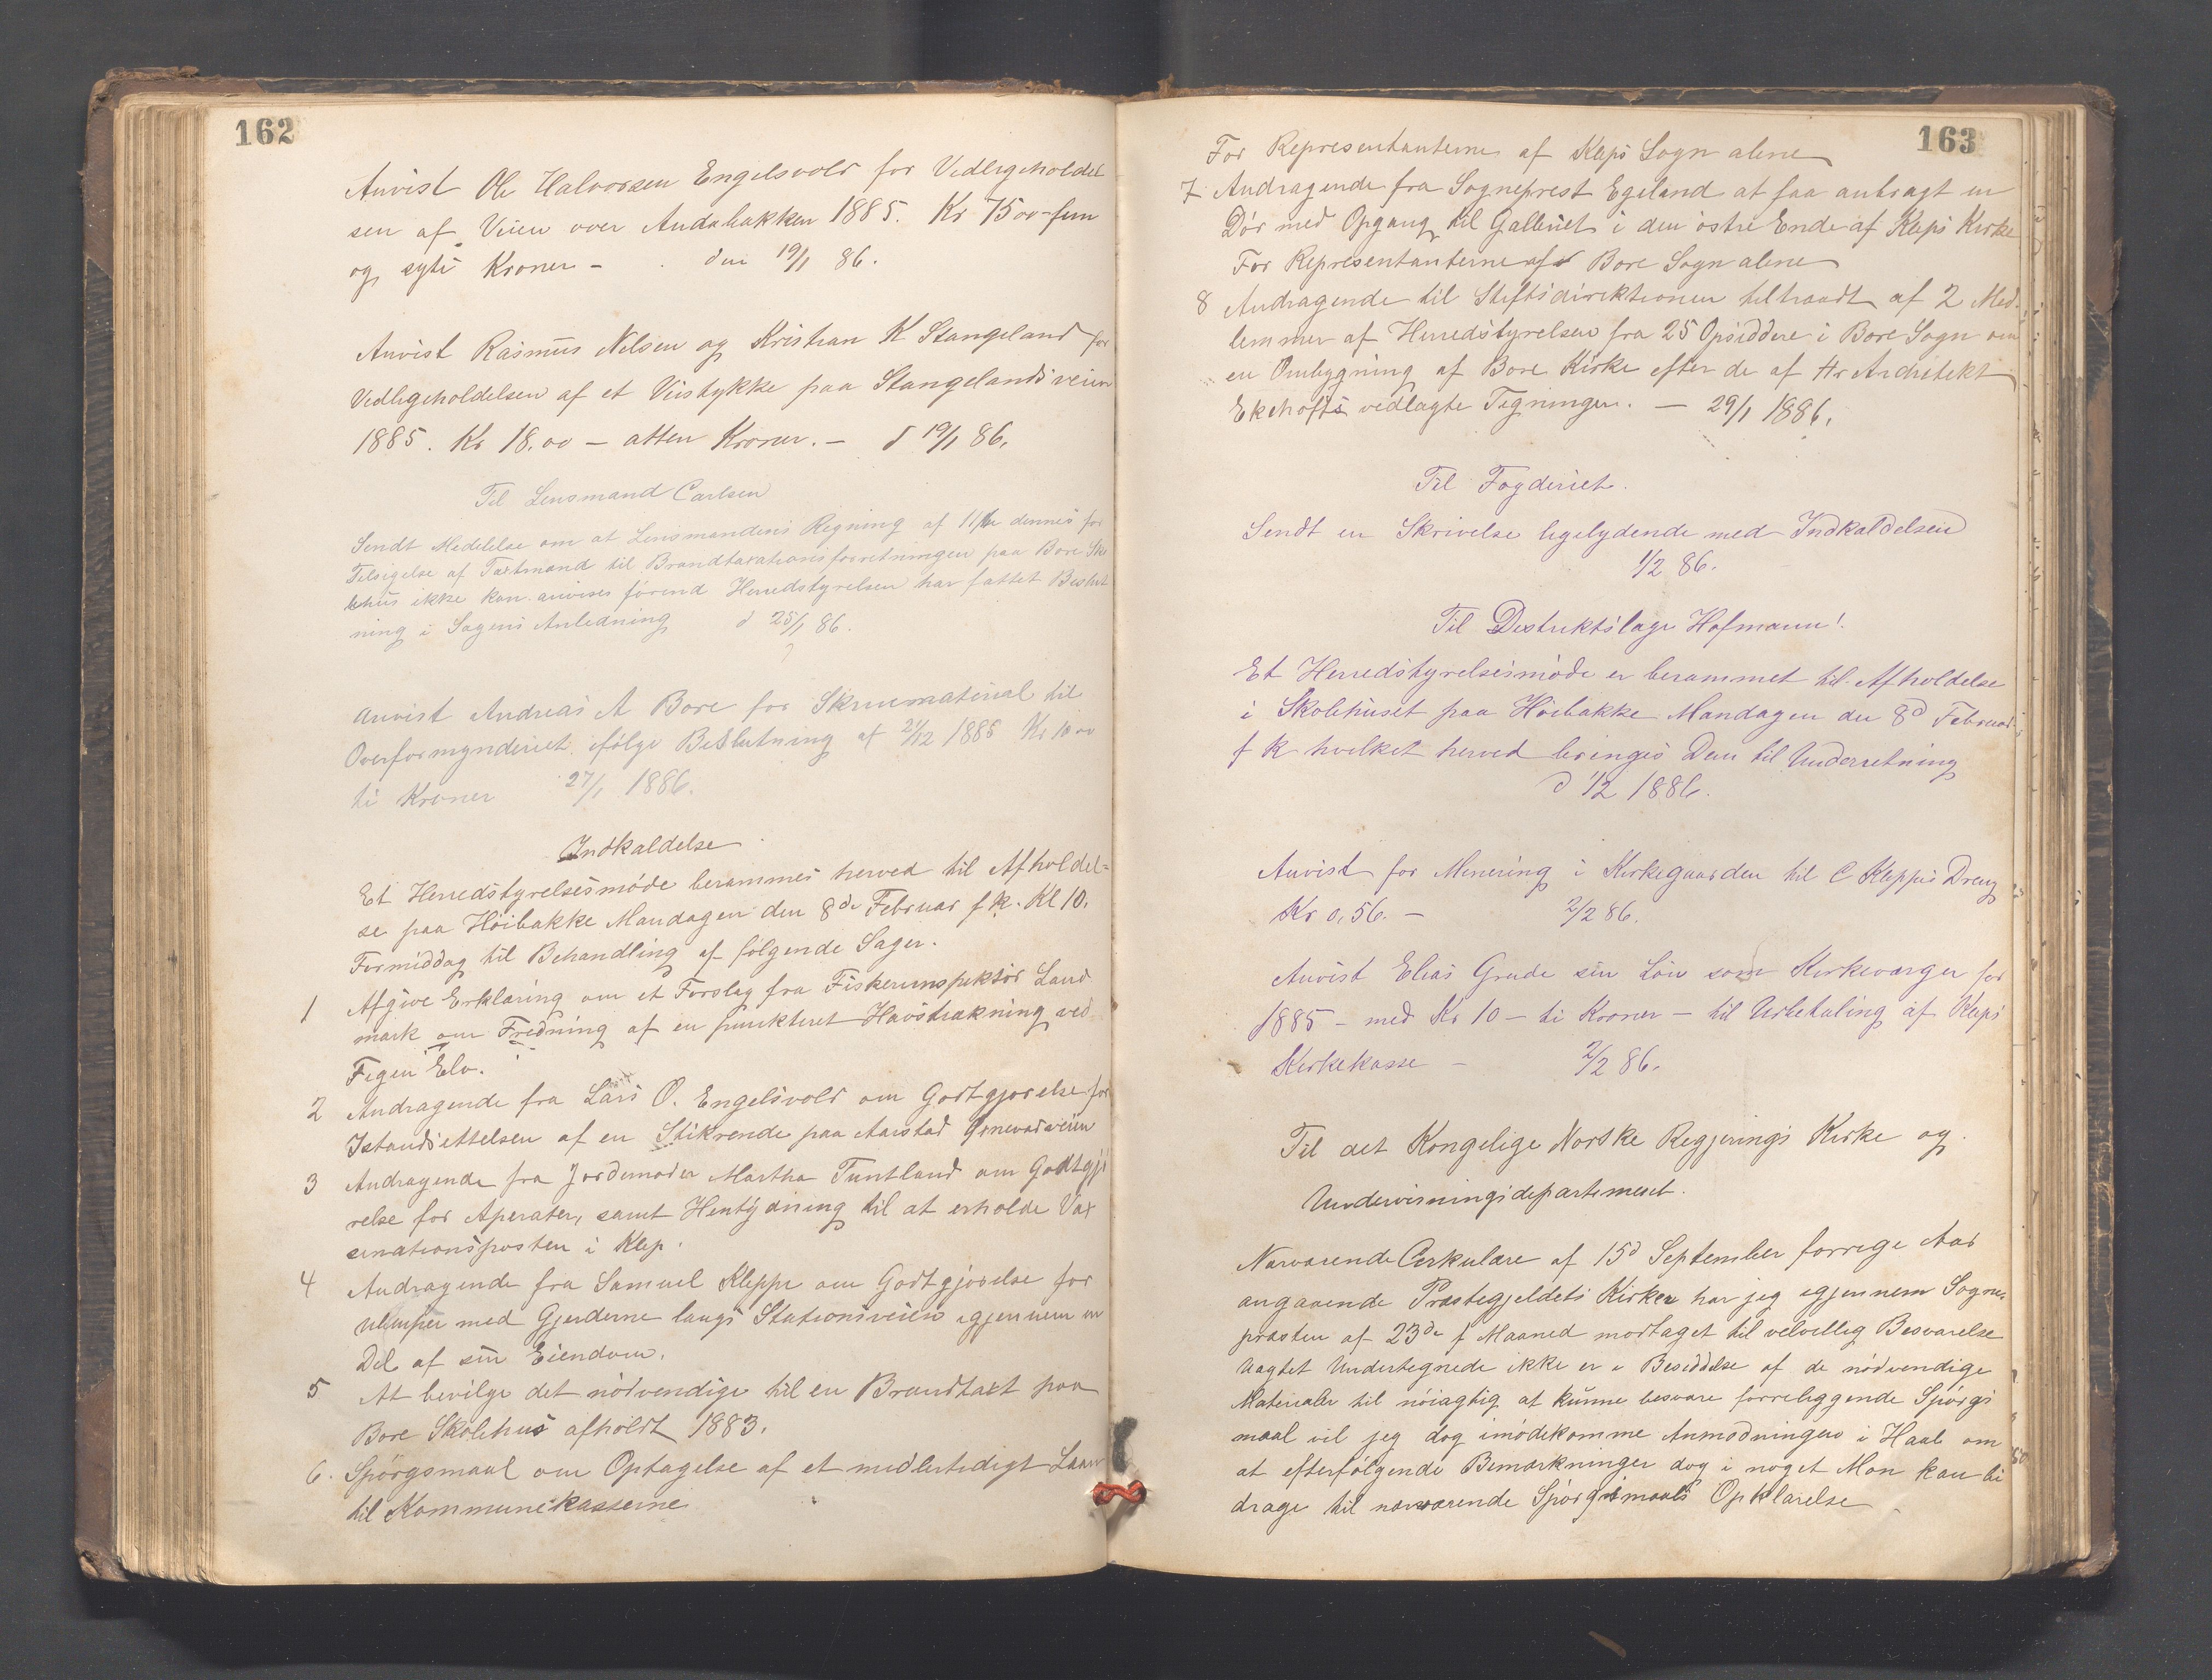 162
Anvist Ole Halvorsen Engelsvold for Vedligeholdel
sen af Veien over Andabakken 1885. Kr 75 00 - fem
og syti Kroner - den 19/1 86.
Anvist Rasmus Nilsen og Kristian K Stangeland for
Vedligeholdelsen af et Veistykke paa Stangelandsveien
1885. Kr 18.00 - atten Kroner. - d 19/1 86.
Til Lensmand Carlsen
Sendt Medelelse om at Lensmandens Regning af 11te dennes for
Tilsigelse af Taxtmænd til Brandtaxationsforretningen paa Bore Sko
lehus ikke kan anvises förend Herredstyrelsen har fattet Beslut
ning i Sagens Anledning d 25/1 86.
Anvist Andreas A Bore for Skrivematerial til
Overformynderiet ifølge Beslutning af 21/12 1885 Kr 10 00
ti Kroner 27/1 1886.
Indkaldelse
Et Herredstyrelsesmóde berammes herved til Afholdel-
se paa Höibakke Mandagen den 8de Februar f k. Kl 10.
Formiddag til Behandling af folgende Sager.
1 Afgive Erklæring om et Forslag fra Fiskeriinspektör Land
mark om Fredning af en punkteret Havstrækning ved
Figgen Elv.
2 Andragende fra Lars O. Engelsvold om Godtgjorelse for
Istandsettelsen af en Stikrende paa Aarstad Grnevadsveien
3 Andragende fra Jordemoder Martha Tuntland om Godtgjö
relse for Aperater, samt Hentydning til at erholde Vax
sinationsposten i Klep.
4 Andragende fra Samuel Kleppe om Godtgjorelse for
Ulemper med Gjerderne langs Stationsveien igjennem en
Del af sin Eiendom.
5 At bevilge det nödvendige til en Brandtaxt paa
Bore Skolehus afholdt 1883.
6. Spörgsmaal om Optagelse af et midlertidigt Laan
til Kommunekasserne
163
For Representanterne af Kleps Sogn alene
7 Andragende fra Sogneprest Egeland at faa anbragt en
Dör med Opgang til Galleriet i den östre Ende af Kleps Kirke
For Representanterne af Bore Sogn alene
8 Andragende til Stiftsdirektionen tiltraadt af 2 Med-
lemmer af Herredstyrelsen fra 25 Opsiddere i Bore Sogn om
en Ombygning af Bore Kirke efter de af Hr Architekt
Ekehofts vedlagte Tegninger. - 29/1 1886.
Til Fogderiet.
Sendt en Skrivelse ligelydende med Indkaldelsen
1/2 86.
Til Distriktslæge Hofmann!
Et Herredstyrelsesmöde er berammet til Afholdelse
i Skolehuset paa Höibakke Mandagen den 8d Februar
f k hvilket herved bringes Dem til Underretning
d 1/2 1886.
Anvist for Minering i Kirkegaarden til C Kleppes Dreng
Kr 0,56. - 2/2 86.
Anvist Elias Grude sin Lön som Kirkeværger for
1885 - med Kr 10 - ti Kroner - til Udbetaling af Kleps
Kirkekasse - 2/2 86.
Til det Kongelige Norske Regjerings Kirke og
Undervisningsdepartement.
Nærværende Cirkulære af 15d September forrige Aar
angaaende Præstegjeldets Kirker har jeg igjennem Sogne-
præsten af 23de f Maaned modtaget til velvillig Besvarelse
Uagtet Undertegnede ikke er i Besiddelse af de nödvendige
Materialer til nöiagtig at kunne besvare forreliggende Spörgs
maal vil jeg dog imödekomme Anmodningen i Haab om
at efterfölgende Bemærkninger dog i noget Mon kan bi
drage til nærværende Spörgsmaals Opklarelse